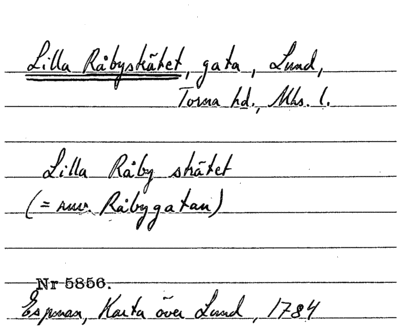 Lilla Råbysträtet, gata, Lund,
Torna hd., Mhs. l.
Lilla Råby strätet
(= nuv. Råbygatan)
Nr 5856.
Espman, Karta över Lund, 1784